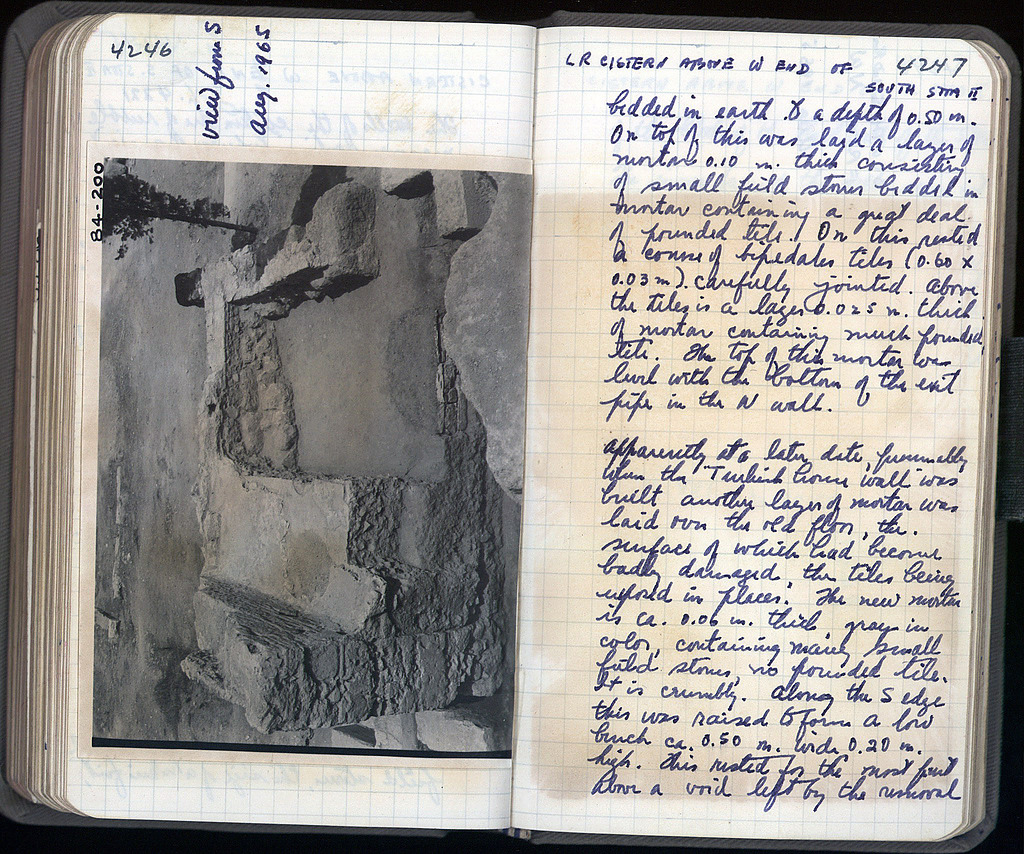 4246
view from S
Aug. 1965
84-200
LR CISTERN ABOVE W END OF 4247
SOUTH STOA II
bedded in earth to a depth of 0.50 m.
On top of this was laid a layer of
mortar 0.10 m. thick consisting
of small field stones bedded in
mortar containing a great deal
of pounded tile. On this rested
a course of bipedales tiles (0.60 x
0.03 m). carefully jointed. Above
the tiles is a layer 0.025 m. thick
of mortar containing much pounded
tile. The top of this mortar was
level with the bottom of the exit
pipe in the N wall.
Apparently at a later date, presumably
when the Turkish house wall was
built another layer of mortar was
laid over the old floor, the
surface of which had become
badly damaged, the tiles being
exposed in places. The new mortar
is ca. 0.06 m. thick, gray in
color, containing many small
field stones, no pounded tile.
It is crumbly. Along the S edge
this was raised to form a low
bench ca. 0.50 m. wide 0.20 m.
high. This rested for the most part
above a void left by the removal